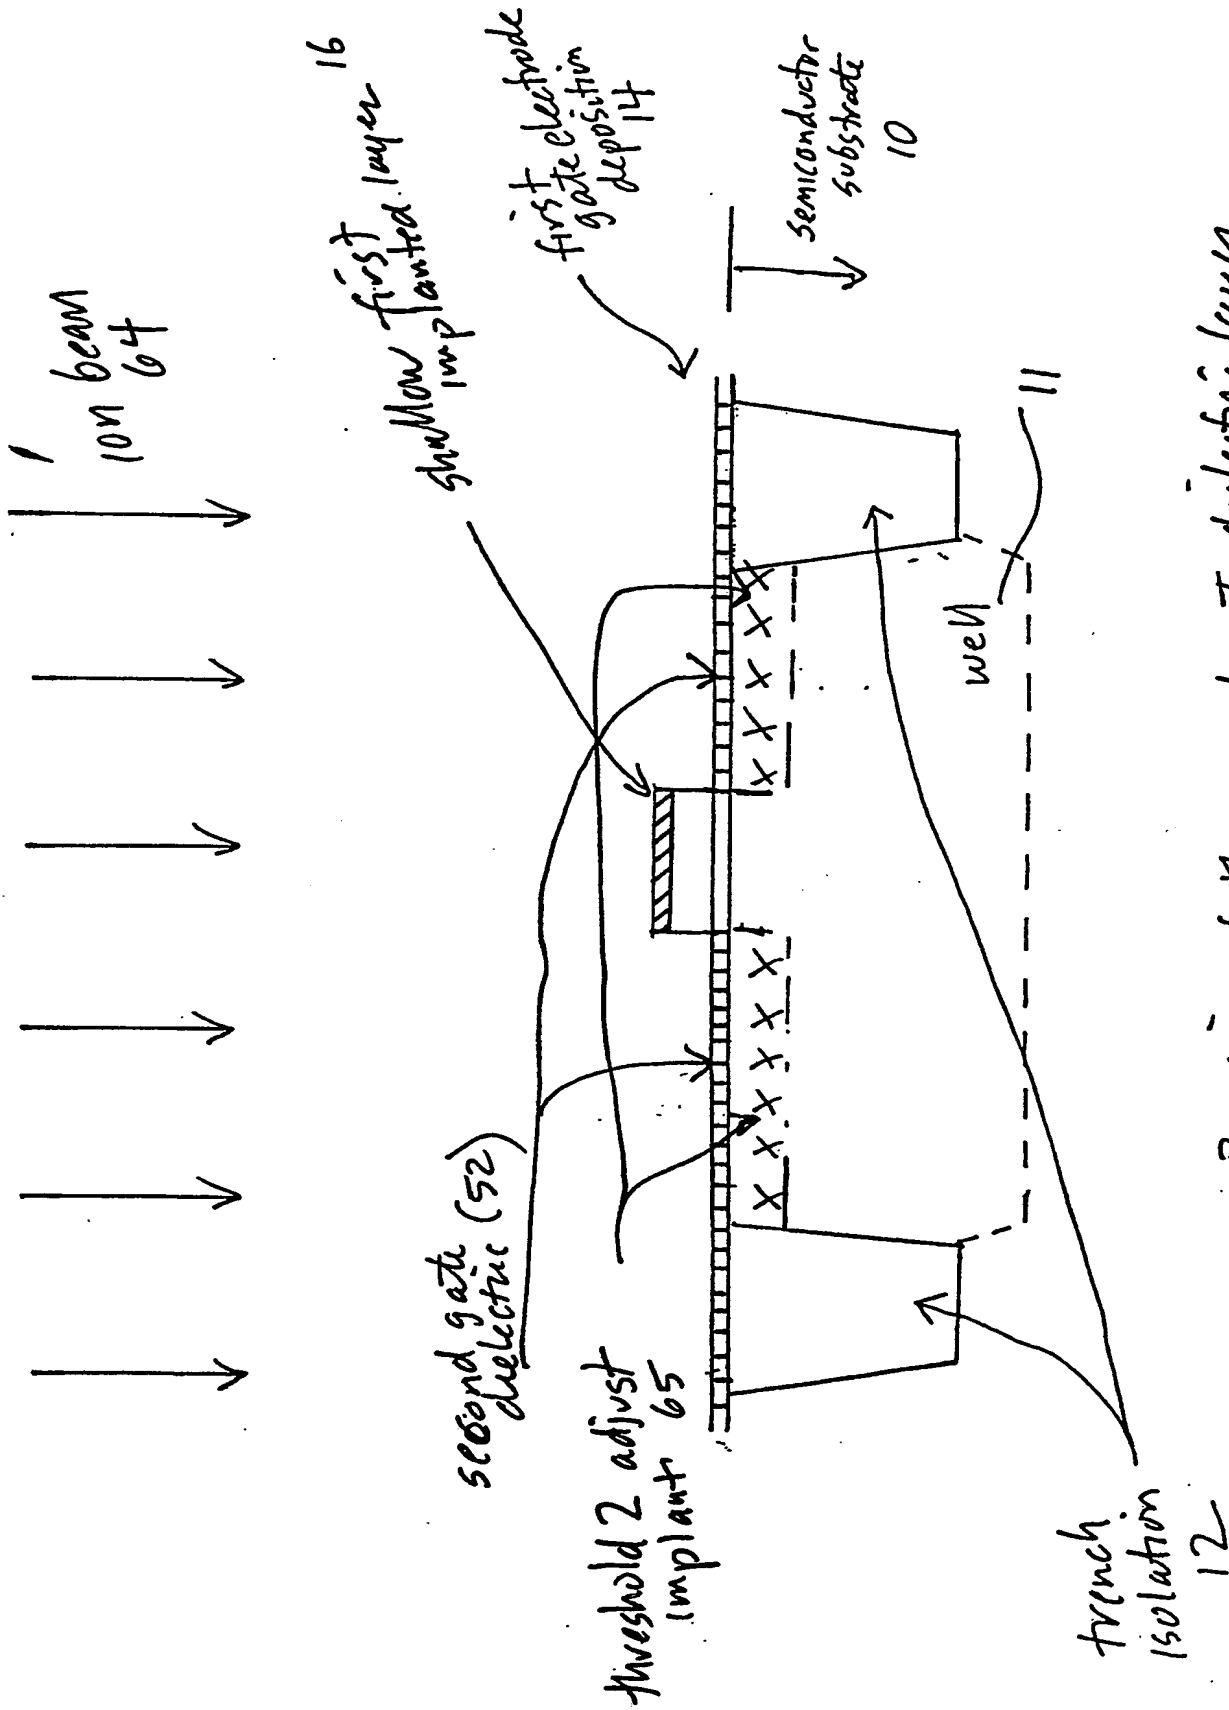 ion beam
64
shallow first
implanted layer
16
first
gate electrode
deposition
14
semiconductor
substrate
10
second gate
dielectric (52)
threshold 2 adjust
implant 65
well
11
trench
isolation
12